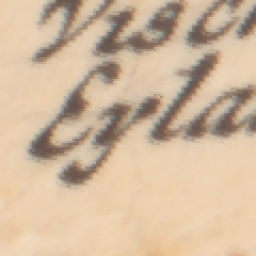 Visch
Eyla